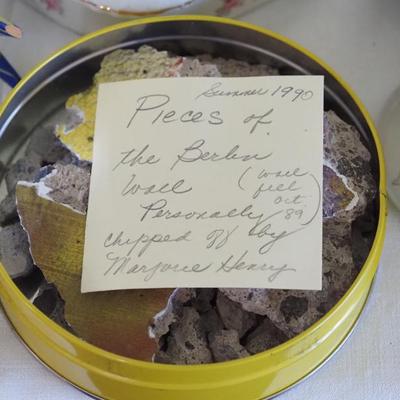 Summer 1990
Pieces of
the Berlin
Wall (wall
fell
Oct.
89)
Personally
chipped off by
Marjorie Henry